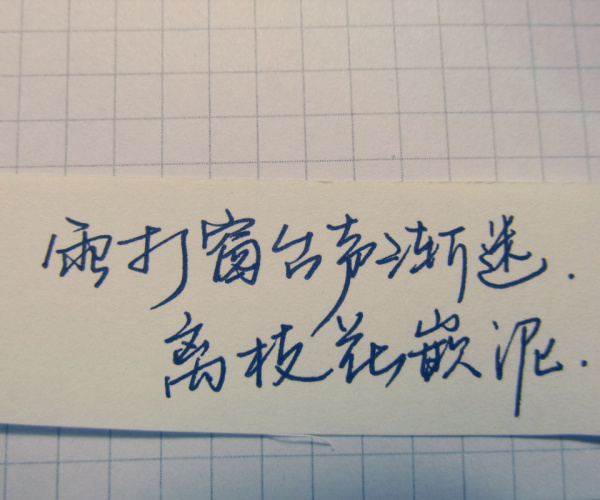 雨打窗台声渐迷.
离枝花嵌泥.